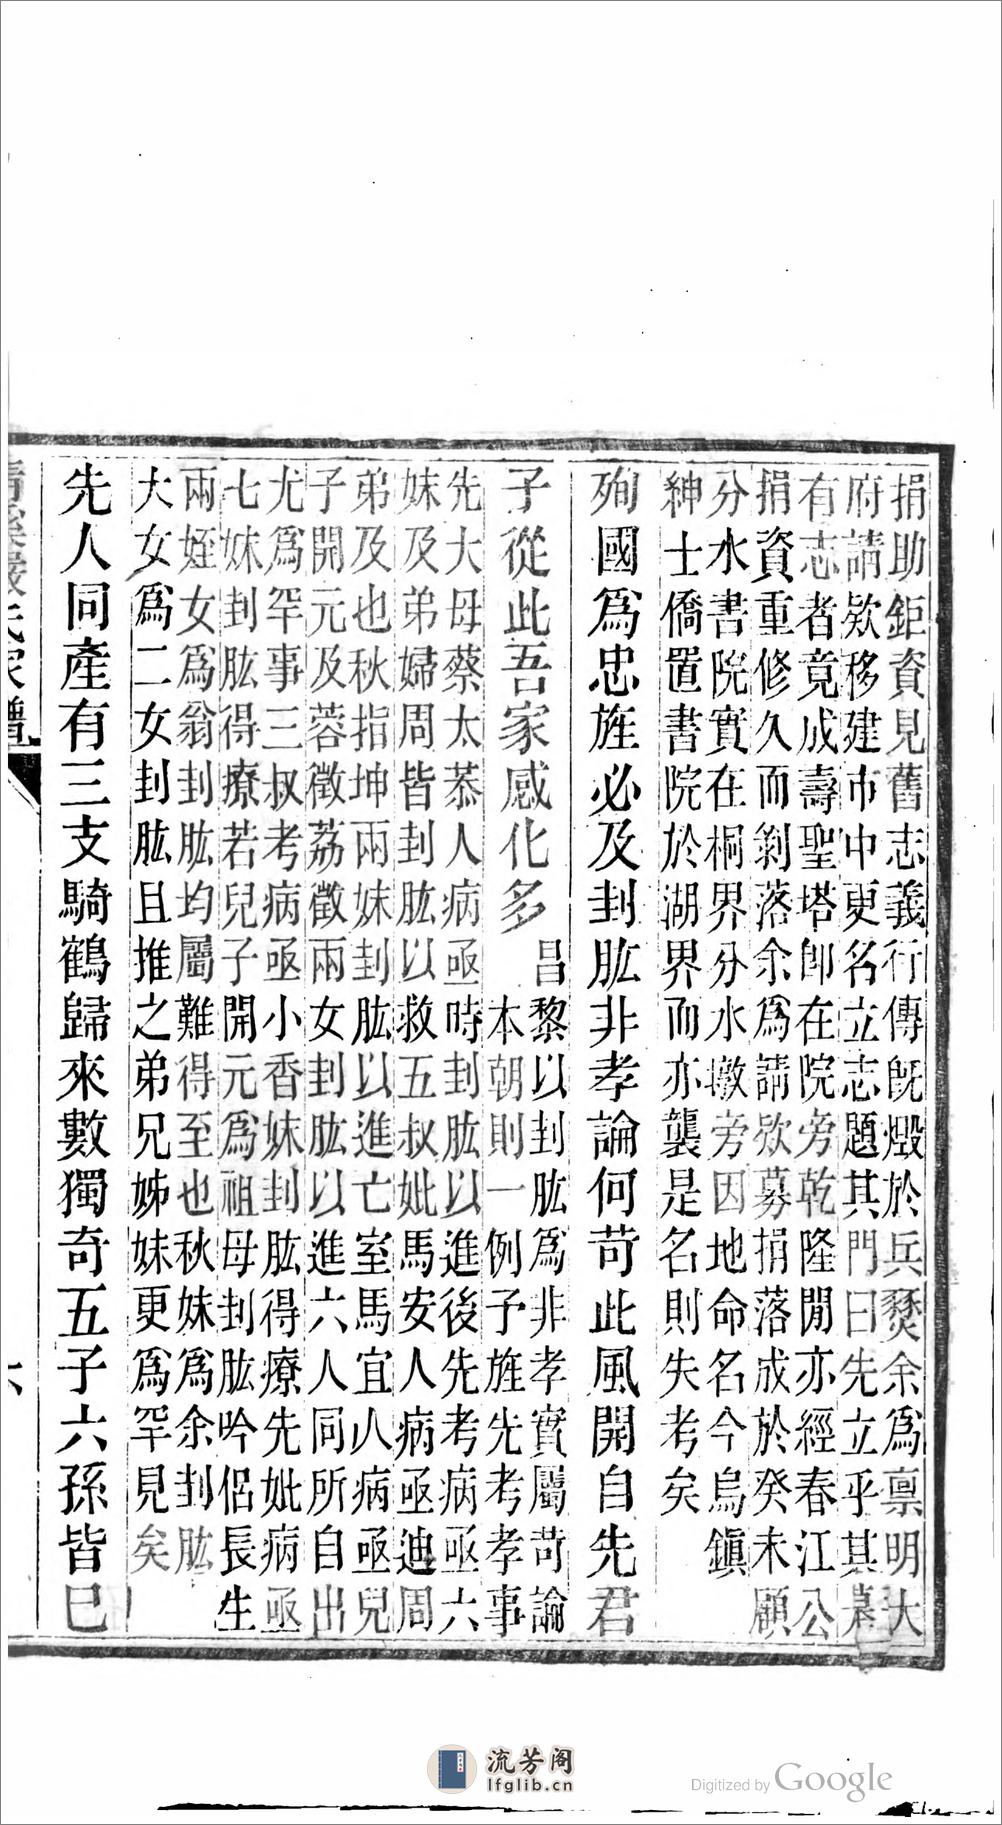 捐助鉅資見舊志義行傳旣燬於兵燹余爲禀明大
府請欵移建市中更名立志題其門曰先立乎其
有志者竟成壽聖塔卽在院旁乾隆閒亦經春江公
捐資重修久而剝落余爲請欵募捐落成於癸未顧
分水書院實在桐界分水墩旁因地命名今烏鎭
紳士僑置書院於湖界而亦襲是名則失考矣
殉國爲忠旌必及刲肱非孝論何苛此風開自先君
子從此吾家感化多
昌黎以刲肱爲非孝實屬苛論
本朝則一例予旌先考孝事
先大母蔡太恭人病亟時刲肱以進後先考病亟六
妹及弟婦周皆刲肱以救五叔妣馬安人病亟迪周
弟及也秋指坤兩妹刲肱以進亡室馬宜人病亟兒
子開元及蓉徵荔徵兩女刲肱以進六人同所自出
尤爲罕事三叔考病亟小香妹刲肱得療先妣病亟
七妹刲肱得療若兒子開元爲祖母刲肱吟侶長生
兩姪女爲翁刲肱均屬難得至也秋妹爲余刲肱
大女爲二女刲肱且推之弟兄姊妹更爲罕見矣
先人同產有三支騎鶴歸來數獨奇五子六孫皆已
六
流芳阁
lfglib.cn
Digitized by Google